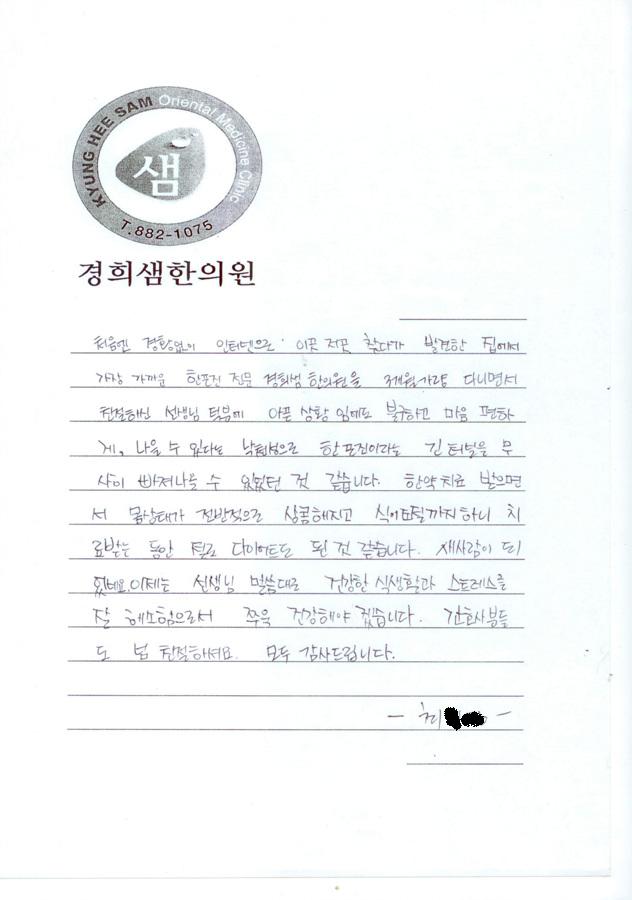 KYUNG HEE SAM Oriental Medicine Clinic
샘
T.882-1075
경희샘한의원
처음엔 경황없이 인터넷으로 이곳 저곳 찾다가 발견한 집에서
가장 가까운 한포진 전문 경희샘 한의원을 3개월가량 다니면서
친절하신 선생님 덕분에 아픈 상황 임에도 불구하고 마음 편하
게, 나을 수 있다는 낙천성으로 한포진이라는 긴 터널을 무
사히 빠져나올 수 있었던 것 같습니다. 한약치료 받으면
서 몸상태가 전반적으로 상콤해지고 식이요법까지 하니 치
료받는 동안 덤으로 다이어트도 된 것 같습니다. 새사람이 되
었네요. 이제는 선생님 말씀대로 건강한 식생활과 스트레스를
잘 해소함으로서 쭈욱 건강해야 겠습니다. 간호사분들
도 넘 친절하셔요. 모두 감사드립니다.
- 최 -